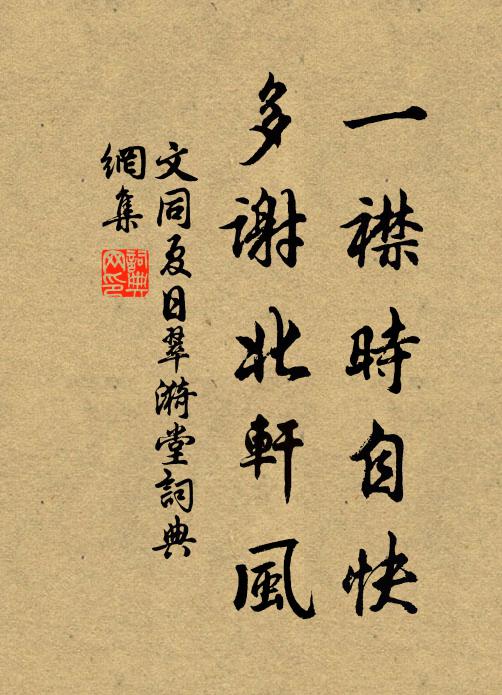 一襟時自快
多謝北軒風
文同夏日翠漪堂詞典
網集
詞典
网印